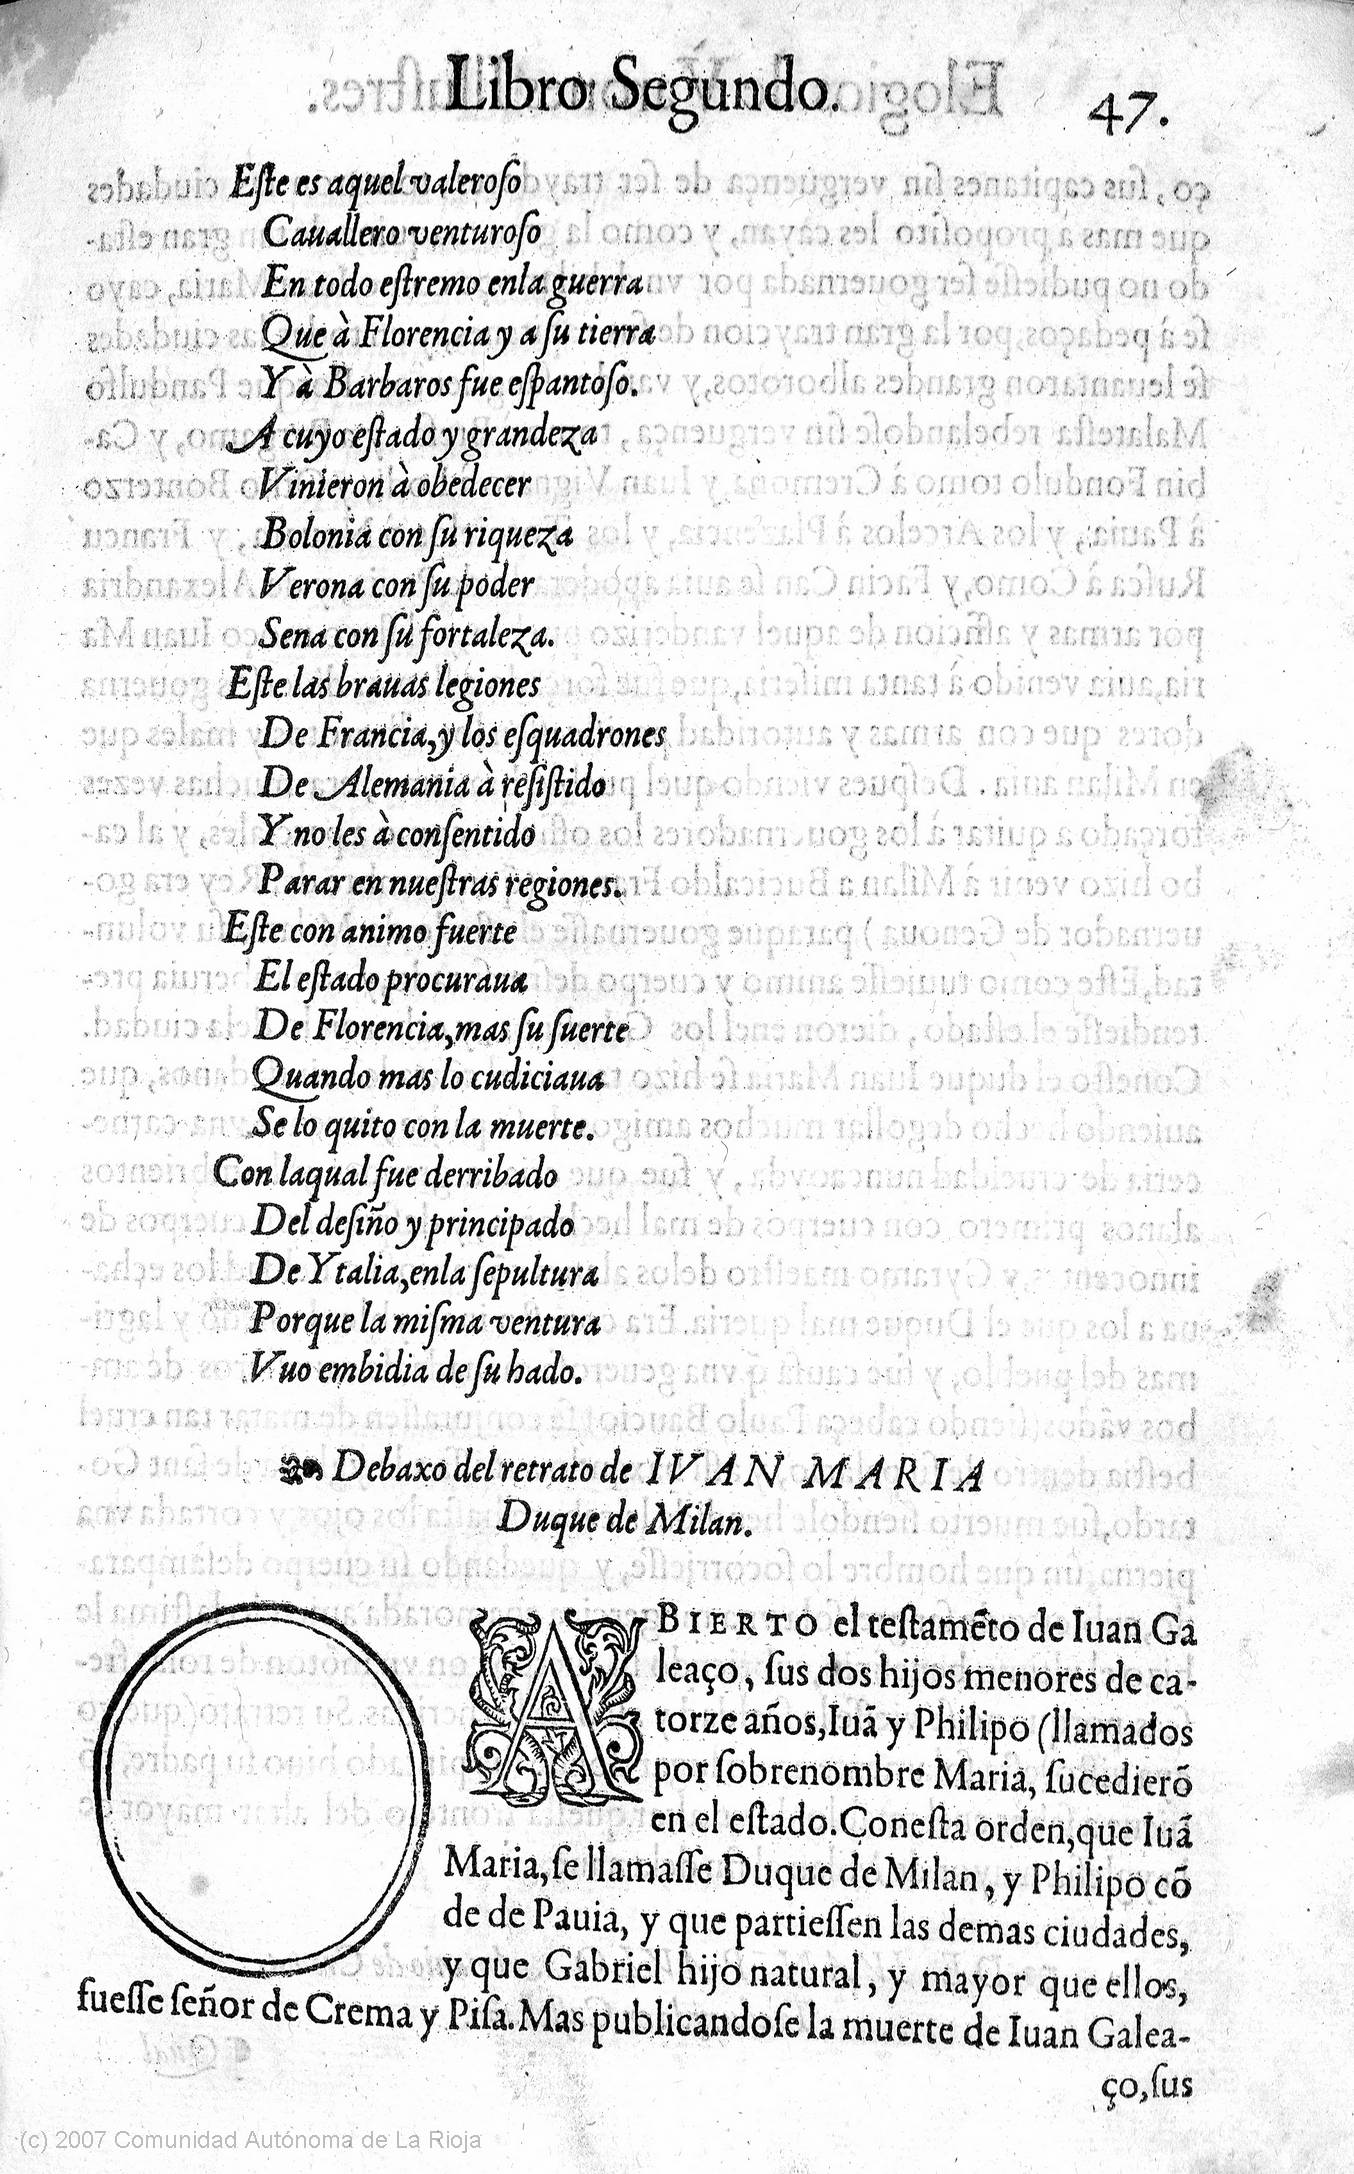 Libro Segundo.
47.
Eſte es aquel valeroſo
Cauallero venturoſo
En todo eſtremo enla guerra
Que à Florencia y a ſu tierra
Y à Barbaros fue eſpantoſo.
A cuyo eſtado y grandeza
Vinieron à obedecer
Bolonia con ſu riqueza
Verona con ſu poder
Sena con ſu fortaleza.
Eſte las brauas legiones
De Francia,y los eſquadrones
De Alemania à reſiſtido
Y no les à conſentido
Parar en nueſtras regiones.
Eſte con animo fuerte
El eſtado procuraua
De Florencia,mas ſu ſuerte
Quando mas lo cudiciaua
Se lo quito con la muerte.
Con laqual fue derribado
Del deſiño y principado
De Ytalia,enla ſepultura
Porque la miſma ventura
Vuo embidia de ſu hado.
Debaxo del retrato de IVAN MARIA
Duque de Milan.
ABIERTO el teſtamẽto de Iuan Ga
leaço, ſus dos hijos menores de ca-
torze años,Iuã y Philipo (llamados
por ſobrenombre Maria, ſucedierõ
en el eſtado.Coneſta orden,que Iuã
Maria,ſe llamaſſe Duque de Milan, y Philipo cõ
de de Pauia, y que partieſſen las demas ciudades,
y que Gabriel hijo natural, y mayor que ellos,
fueſſe ſeñor de Crema y Piſa.Mas publicandoſe la muerte de Iuan Galea-
ço,ſus
(c) 2007 Comunidad Autónoma de La Rioja